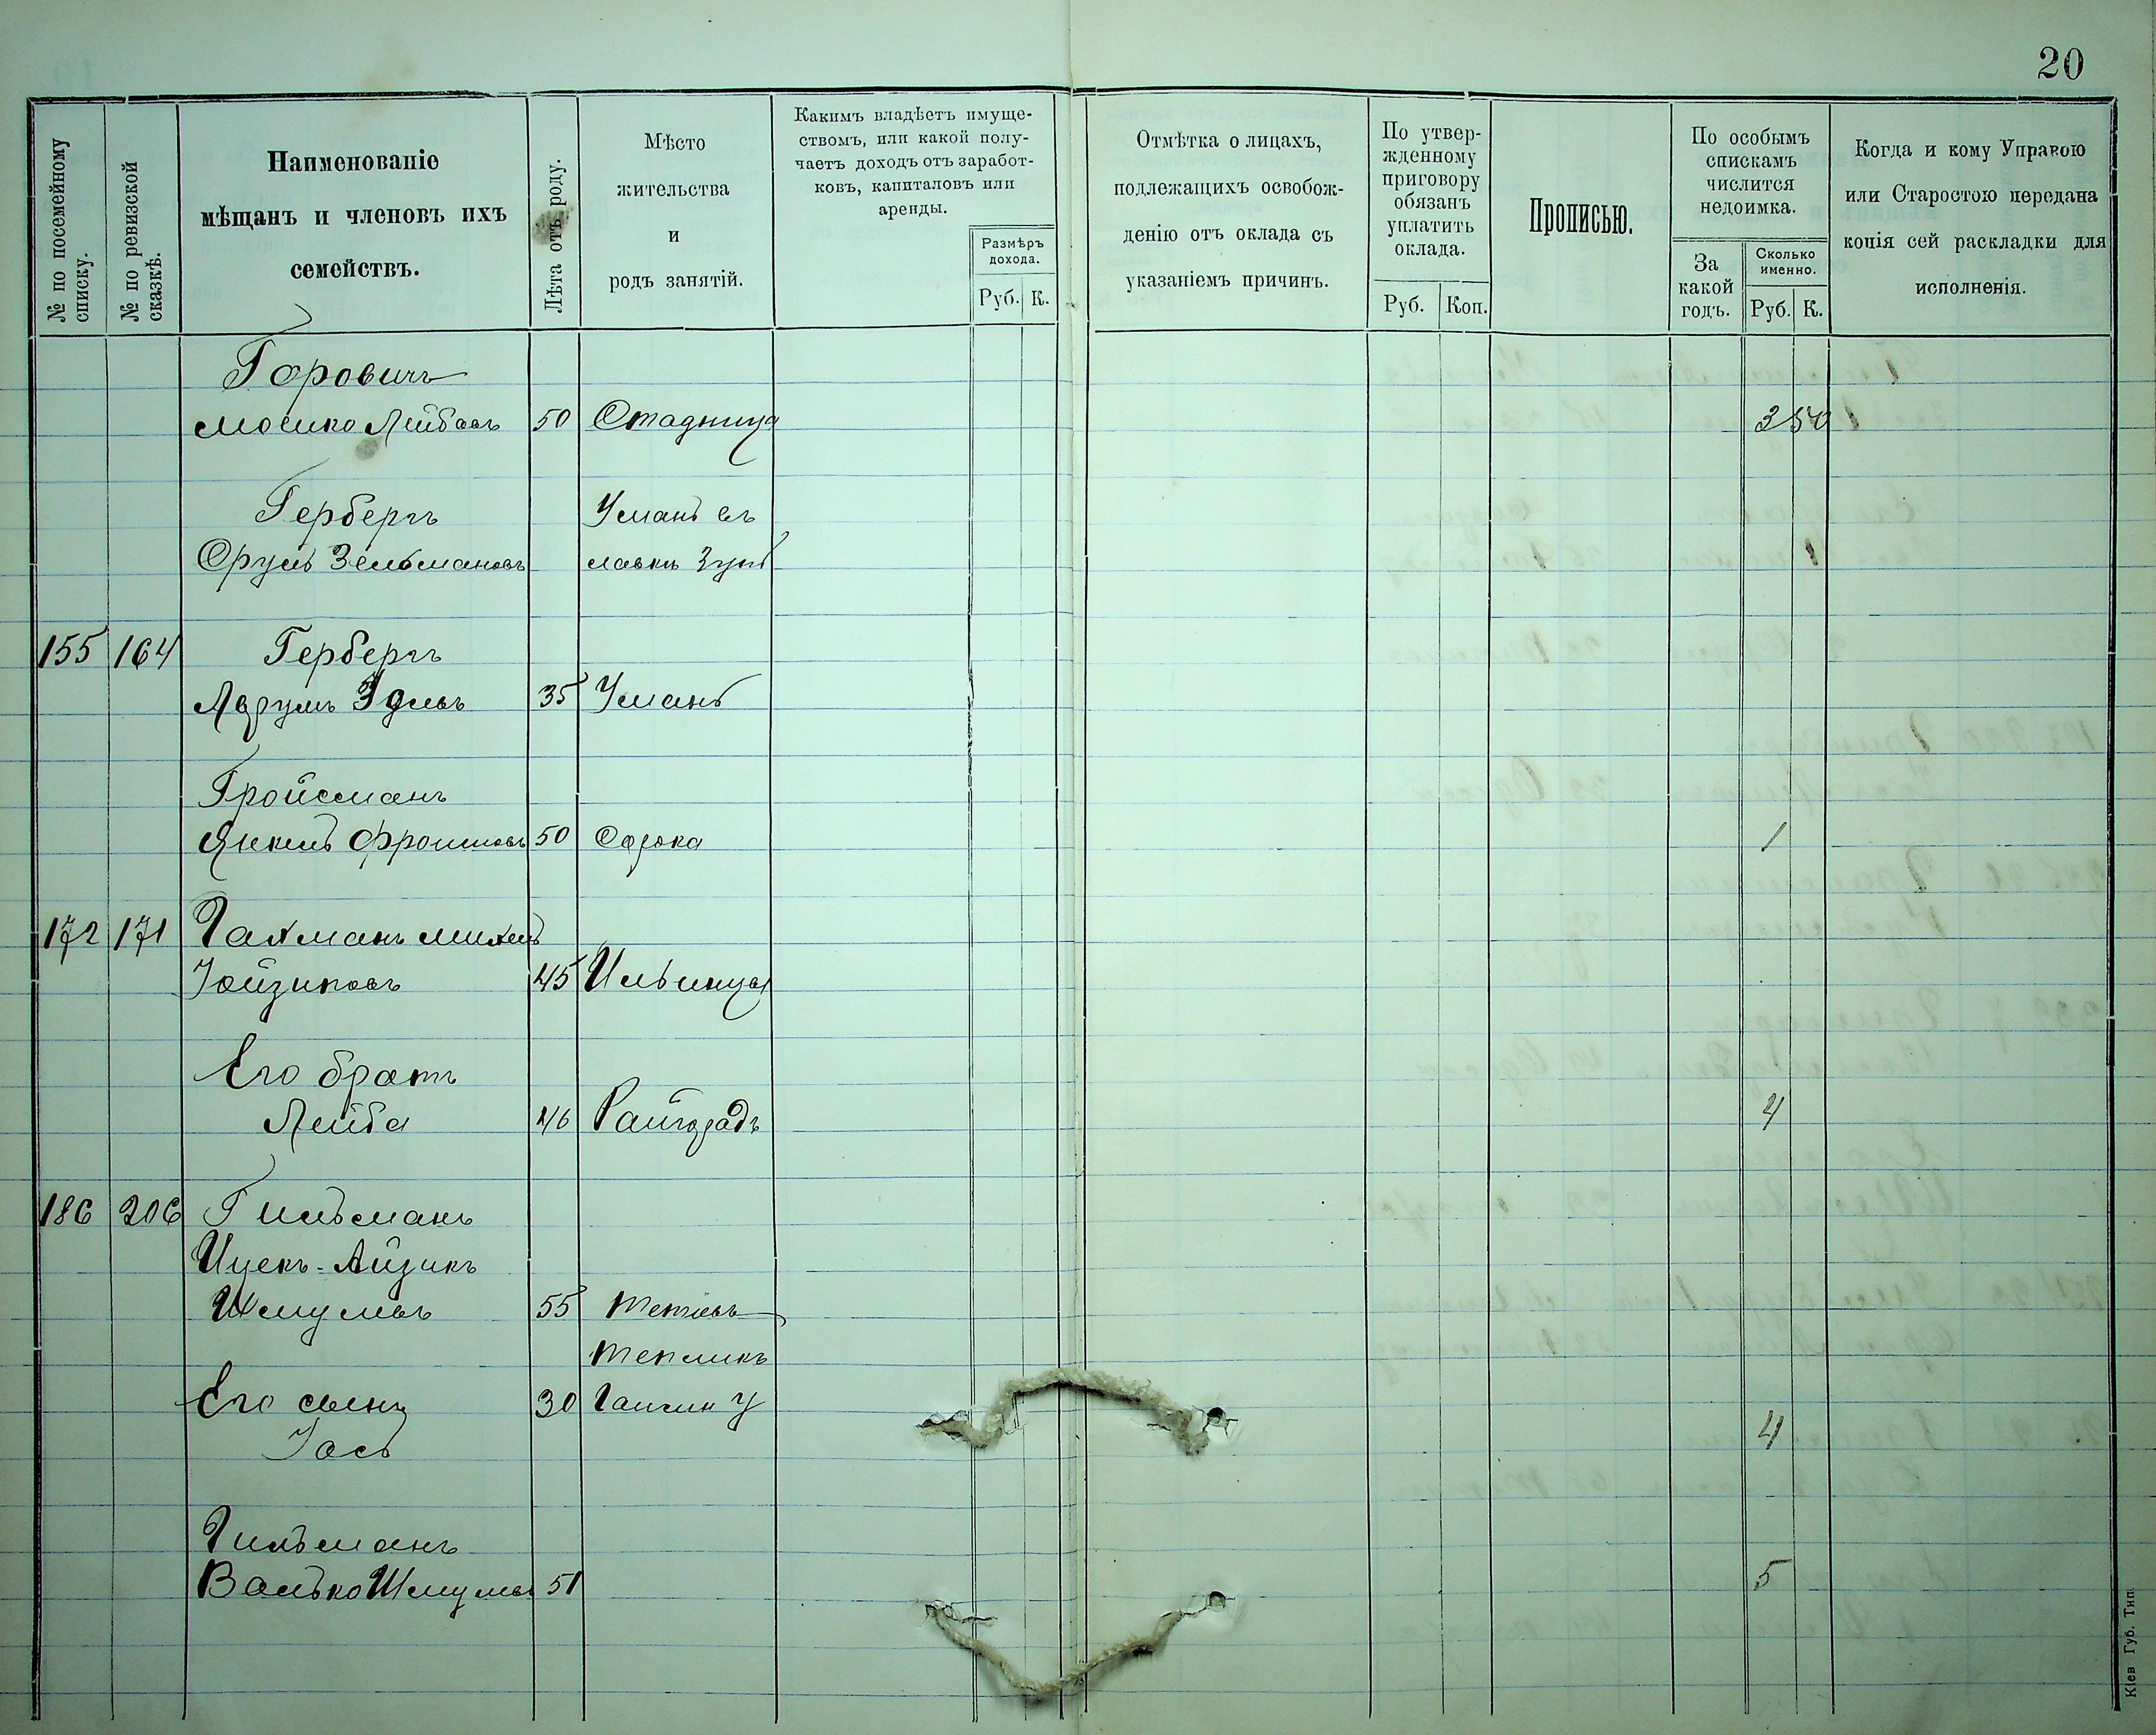 20
№ по посемейному
списку.
№ по ревизской
сказкѣ.
Наименованіе
мѣщанъ и членовъ ихъ
семействъ.
Лѣта отъ роду.
Мѣсто
жительства
и
родъ занятій.
Какимъ владѣетъ имуще-
ствомъ, или какой полу-
чаетъ доходъ отъ заработ-
ковъ, капиталовъ или
аренды.
Размѣръ
дохода.
Руб. К.
Отмѣтка о лицахъ,
подлежащихъ освобож-
денію отъ оклада съ
указаніемъ причинъ.
По утвер-
жденному
приговору
обязанъ
уплатить
оклада.
Руб. Коп.
Прописью.
По особымъ
спискамъ
числится
недоимка.
За
какой
годъ.
Сколько
именно.
Руб. К.
Когда и кому Управою
или Старостою передана
копія сей раскладки для
исполненія.
Горовичъ
Мошко Лейбовъ 50 Стадница 2 50
Гербергъ Умань
Сруль Зельмановъ
155 164 Гербергъ
35 Умань
Гройсманъ
Янкель Фроимовъ 50 Сорока 1
172 171 Гахманъ Михель
45 Ильинцы
Его братъ
Лейба 46 Райгородъ 4
186 206 Гильманъ
Ицекъ-Айзикъ
Шмулевъ 55 Тетіевъ
Тепликъ
Его сынъ 30 Гайсин у
Іось 4
Гильманъ
Валько Шмулев 51 5
Кіев Губ. Тип.